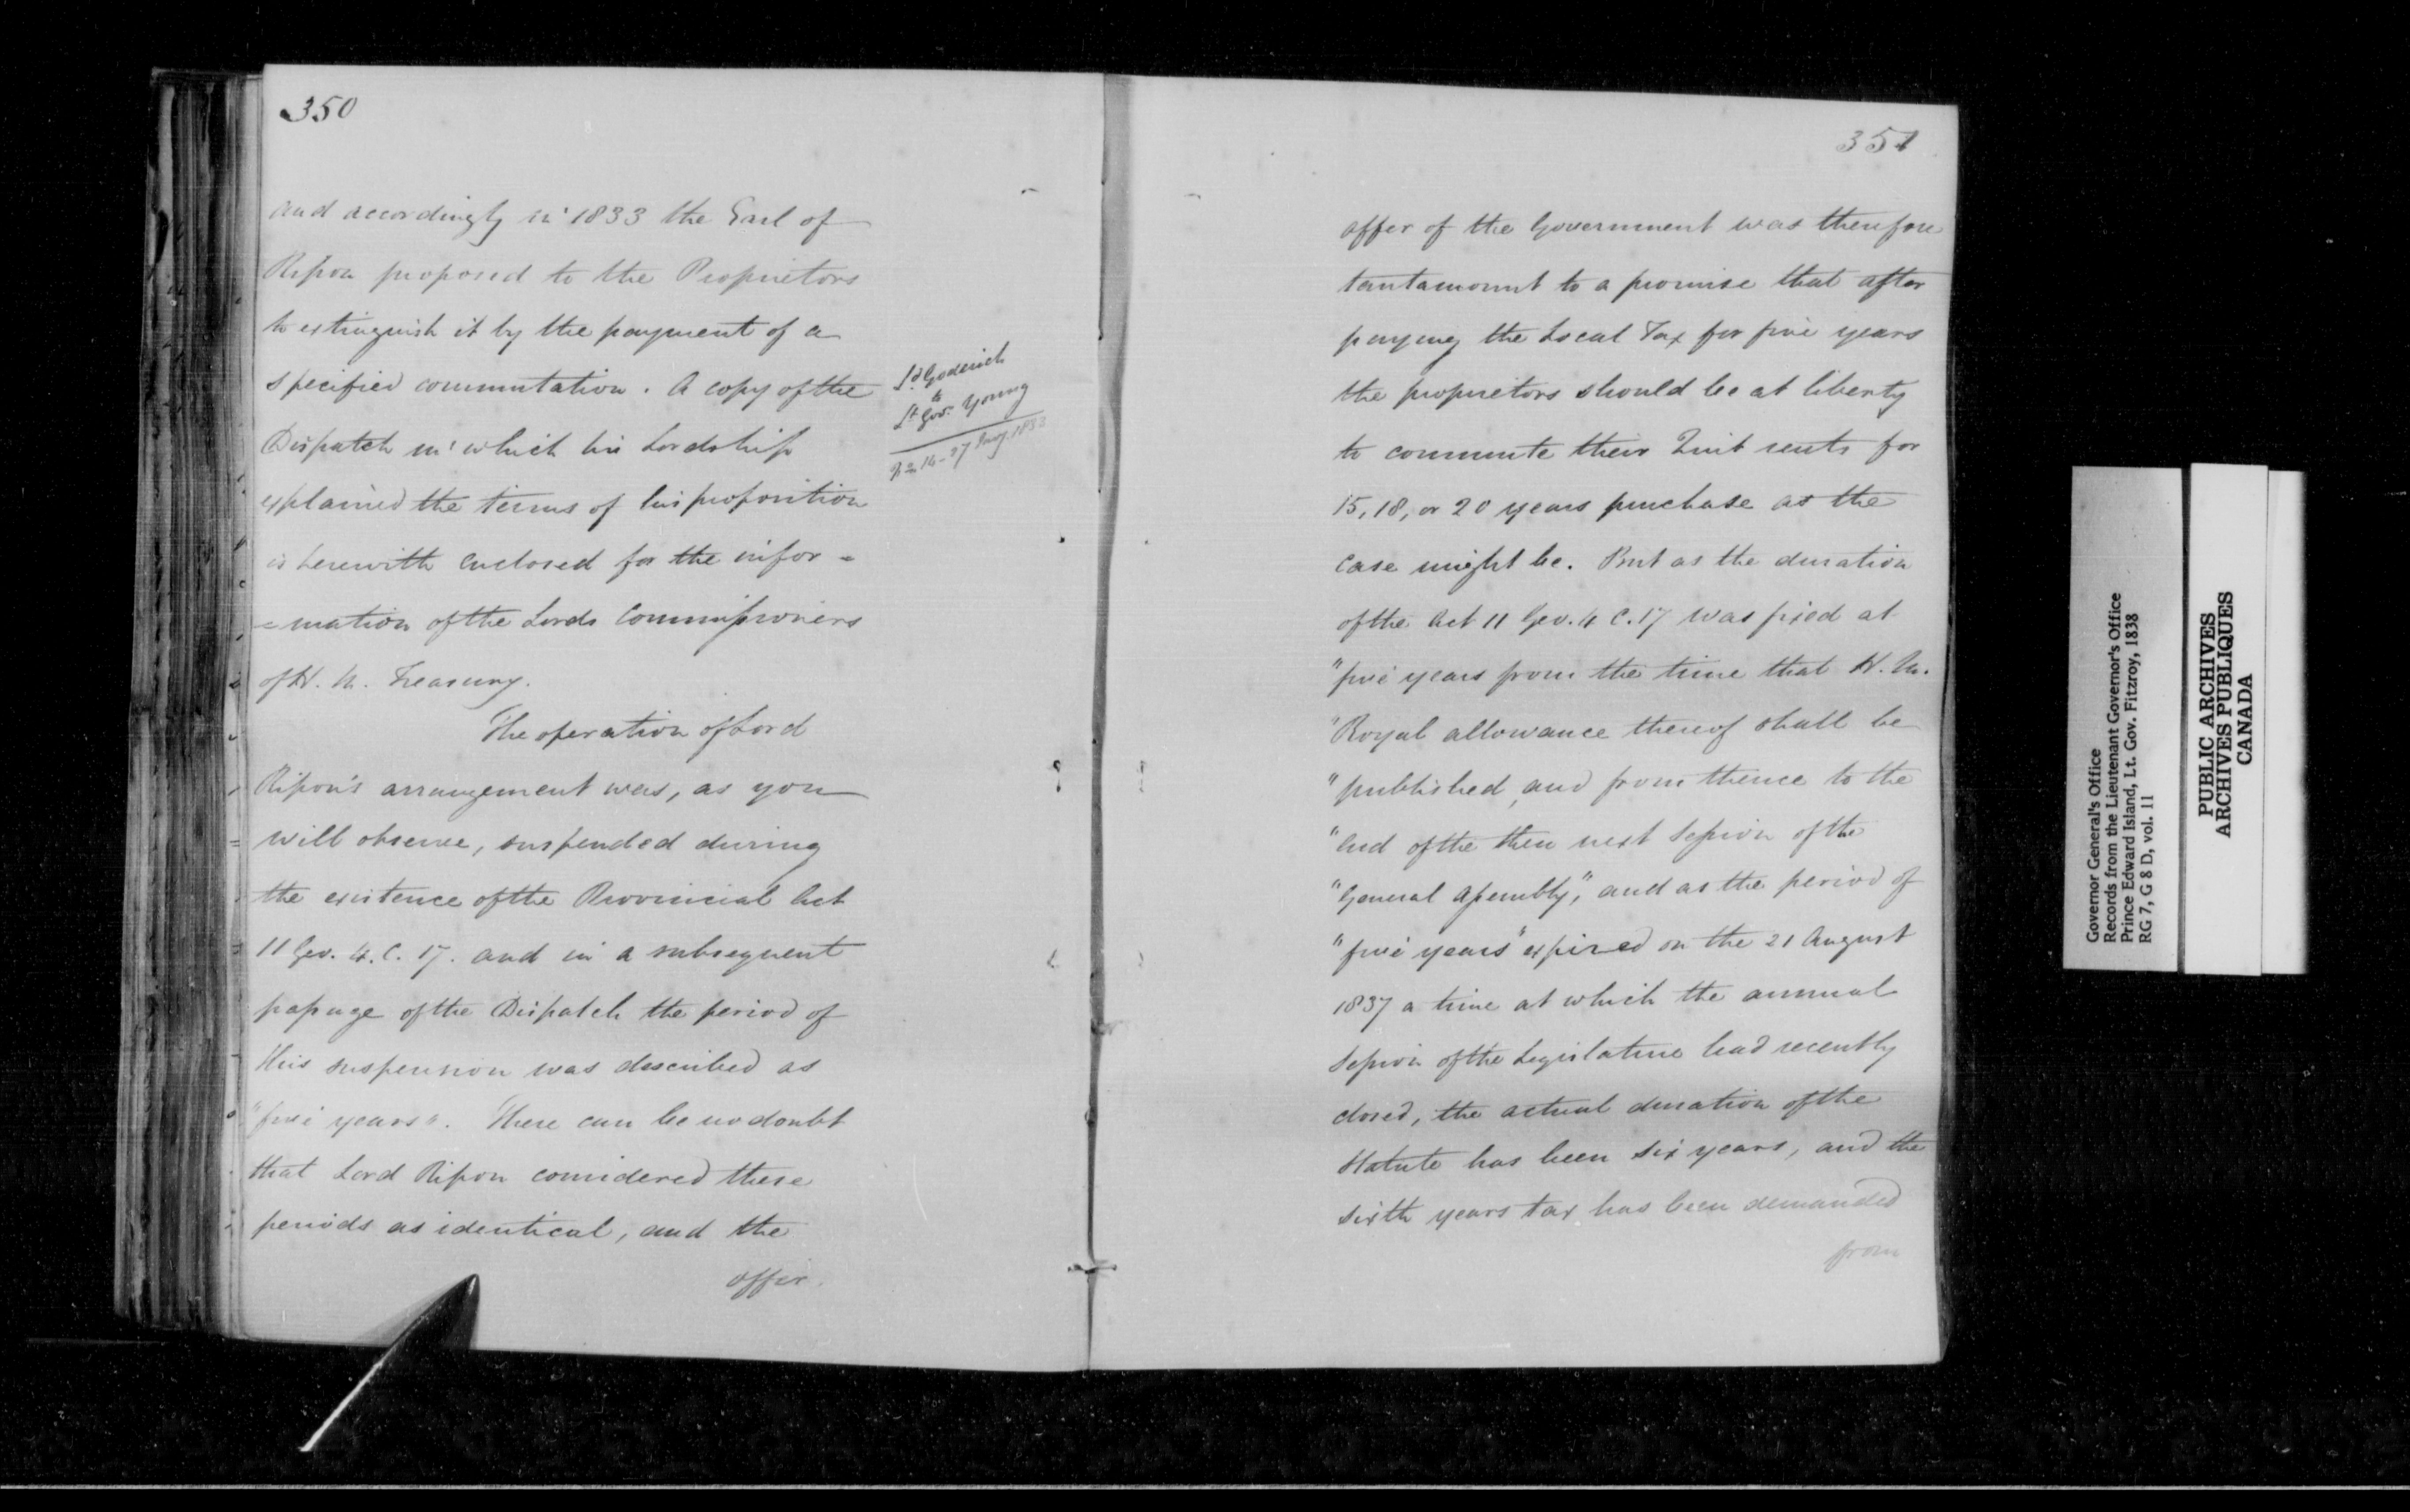 350
and accordingly in 1833 the Earl of
Ripon proposed to the Proprietors
to extinguish it by the payment of a
specified commutation. A copy of the
Dispatch in which his Lordship
explained the terms of his proposition
is herewith enclosed for the infor =
= mation of the Lords Commissioners
of H. M. Treasury.
The operation of Lord
Ripon's arrangement was, as you
will observe, suspended during
the existence of the Provincial Act
11 Geo. 4. C. 17. and in a subsequent
passage of the Dispatch the period of
this suspension was described as
"five years". There can be no doubt
that Lord Ripon considered these
periods as identical, and the
offer
Ld Goderich
to
Lt Govr Young
27 1833
351
offer of the Government was therefore
tantamount to a promise that after
paying the Local Tax for five years
the proprietors should be at liberty
to commute their Quit rents for
15, 18, or 20 years purchase as the
case might be. But as the duration
of the Act 11 Geo. 4 C. 17 was fixed at
"five years from the time that H. M.
"Royal allowance thereof shall be
"published, and from thence to the
"End of the then next Session of the
"General Assembly", and as the period of
"five years" expired on the 21 August
1837 a time at which the annual
Session of the Legislature had recently
closed, the actual duration of the
Statute has been six years, and the
sixth years tax has been demanded
from
Governor General's Office
Records from the Lieutenant Governor's Office
Prince Edward Island, Lt. Gov. Fitzroy, 1838
RG 7, G 8 D, vol. 11
PUBLIC ARCHIVES
ARCHIVES PUBLIQUES
CANADA